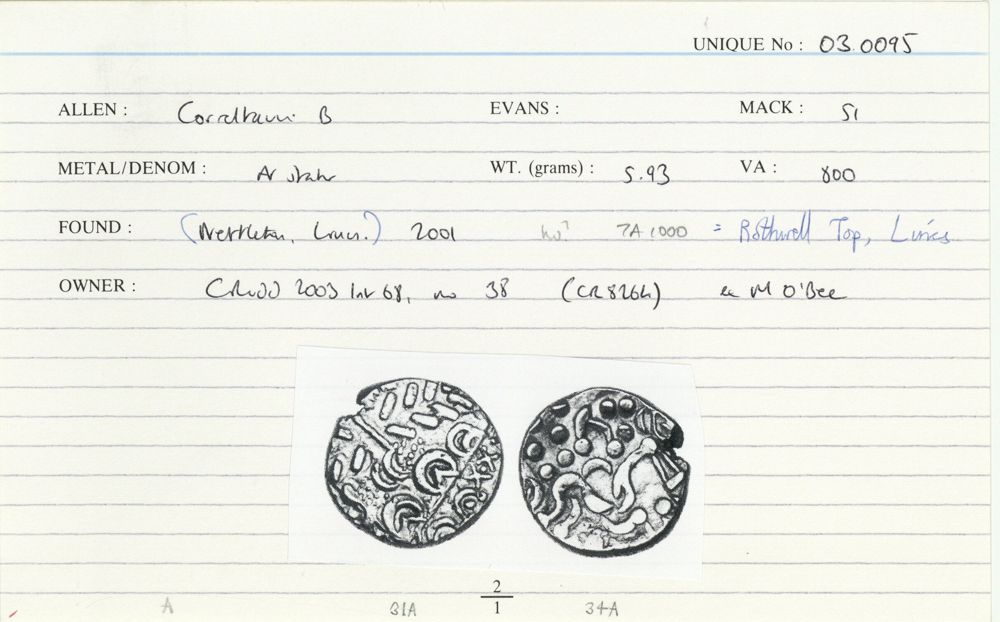 UNIQUE No : 03.0095
ALLEN : Corieltauvi B EVANS : MACK : 51
METAL/DENOM : AV stater WT. (grams) : 5.93 VA : 800
FOUND : (Nettleton, Lincs.) 2001 no? 7A 1000 = Rothwell Top, Lincs
OWNER : CRudd 2003 list 68, no 38 (CR826h) ex M O'Bee
2
1
A 31A 34-A